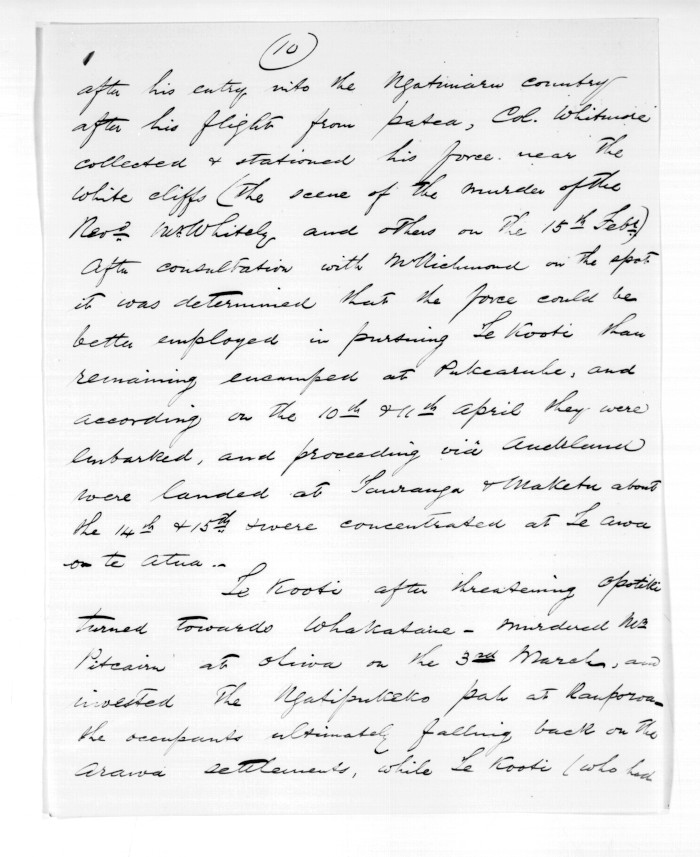 (10)
after his entry into the Ngatimaru country
after his flight from patea, Col. Whitmore
collected & stationed his force near the
White cliffs (the scene of the murder of the
Revd Mr Whitely and others on the 15th Feby)
After consultation with Mr Richmond on the spot
it was determined that the force could be
better employed in pursuing Te Kooti than
remaining encamped at Pukearuhe, and
according on the 10th & 11th April they were
embarked, and proceeding viâ Auckland
were landed at Tauranga & Maketu about
the 14th & 15th & were concentrated at Te Awa
o te Atua.-
Te Kooti after threatening Opotiki
turned towards Whakatane - murdered Mr
Pitcairn at Ohiwa on the 3rd March, and
invested the Ngatipukeko pah at Rauporoa
the occupants ultimately falling back on the
Arawa settlements, while Te Kooti (who had